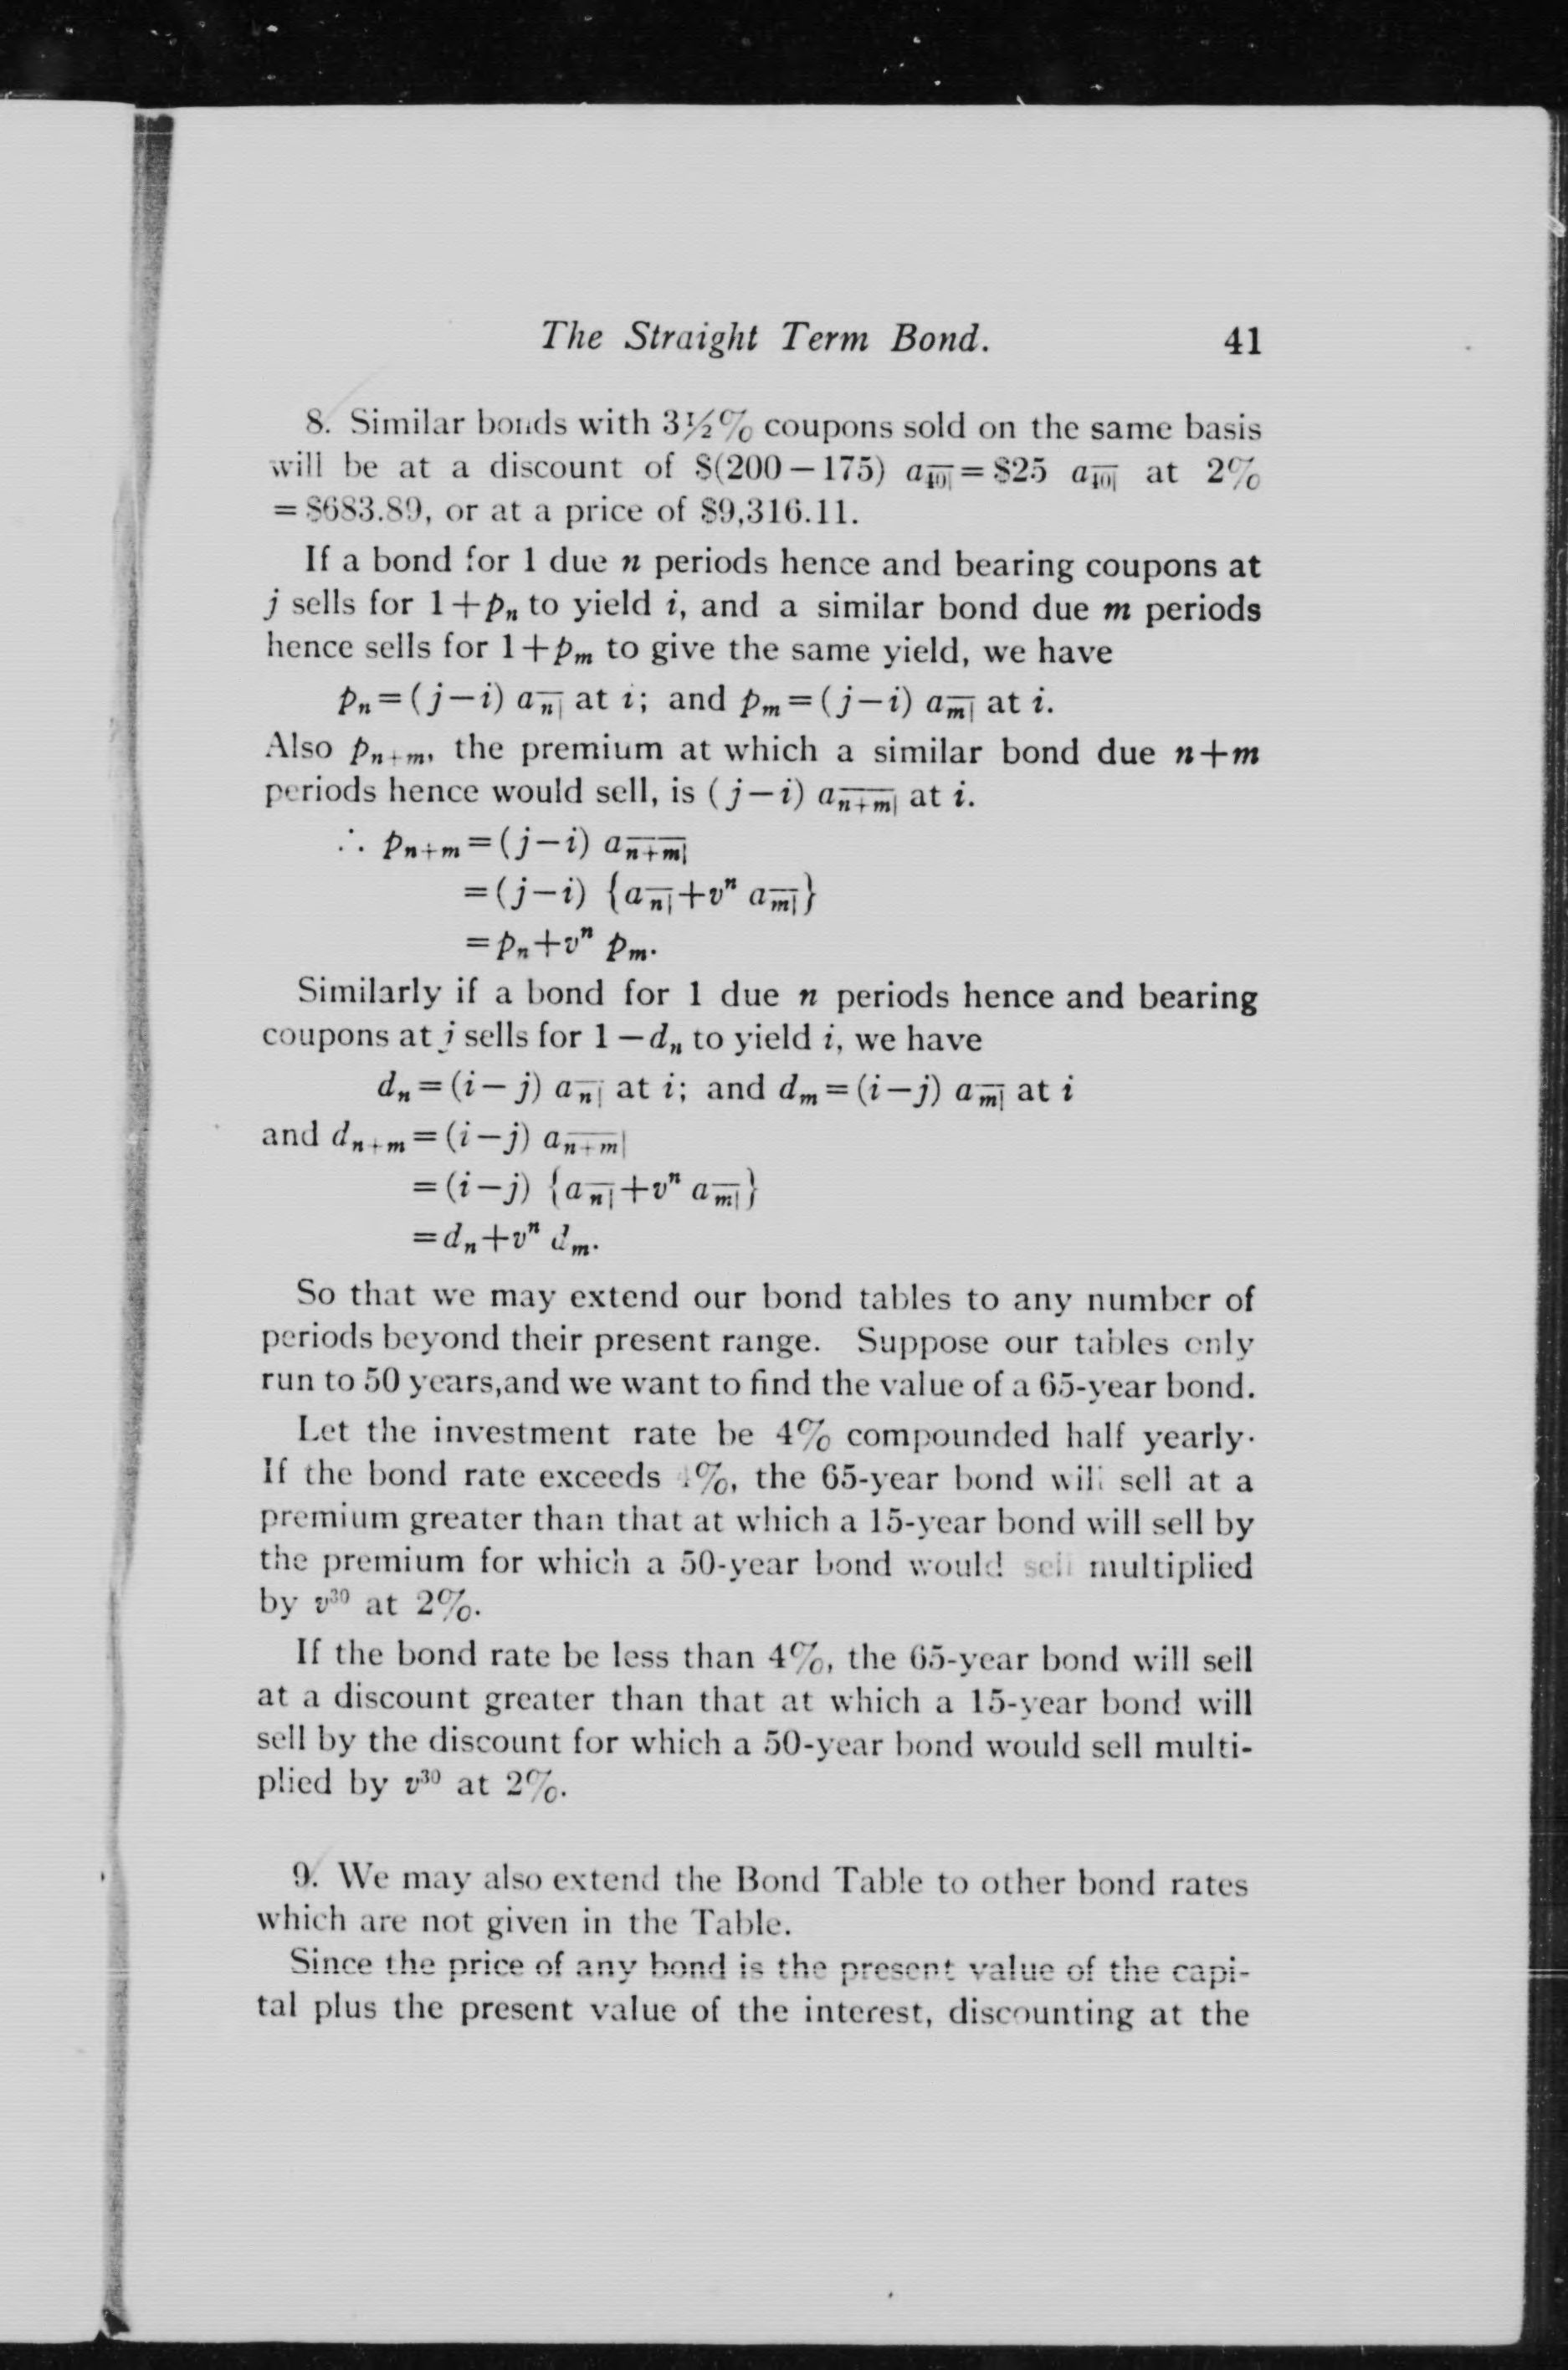 The Straight Term Bond. 41
8. Similar bonds with 3½% coupons sold on the same basis
will be at a discount of $(200−175) a40| = $25 a40| at 2%
= $683.89, or at a price of $9,316.11.
If a bond for 1 due n periods hence and bearing coupons at
j sells for 1+pₙ to yield i, and a similar bond due m periods
hence sells for 1+pₘ to give the same yield, we have
pₙ=(j−i) aₙ| at i; and pₘ=(j−i) aₘ| at i.
Also pₙ₊ₘ, the premium at which a similar bond due n+m
periods hence would sell, is (j−i) aₙ₊ₘ| at i.
∴ pₙ₊ₘ=(j−i) aₙ₊ₘ|
=(j−i) {aₙ|+vⁿ aₘ|}
=pₙ+vⁿ pₘ.
Similarly if a bond for 1 due n periods hence and bearing
coupons at j sells for 1−dₙ to yield i, we have
dₙ=(i−j) aₙ| at i; and dₘ=(i−j) aₘ| at i
and dₙ₊ₘ=(i−j) aₙ₊ₘ|
=(i−j) {aₙ|+vⁿ aₘ|}
=dₙ+vⁿ dₘ.
So that we may extend our bond tables to any number of
periods beyond their present range. Suppose our tables only
run to 50 years,and we want to find the value of a 65-year bond.
Let the investment rate be 4% compounded half yearly.
If the bond rate exceeds 4%, the 65-year bond will sell at a
premium greater than that at which a 15-year bond will sell by
the premium for which a 50-year bond would sell multiplied
by v³⁰ at 2%.
If the bond rate be less than 4%, the 65-year bond will sell
at a discount greater than that at which a 15-year bond will
sell by the discount for which a 50-year bond would sell multi-
plied by v³⁰ at 2%.
9. We may also extend the Bond Table to other bond rates
which are not given in the Table.
Since the price of any bond is the present value of the capi-
tal plus the present value of the interest, discounting at the